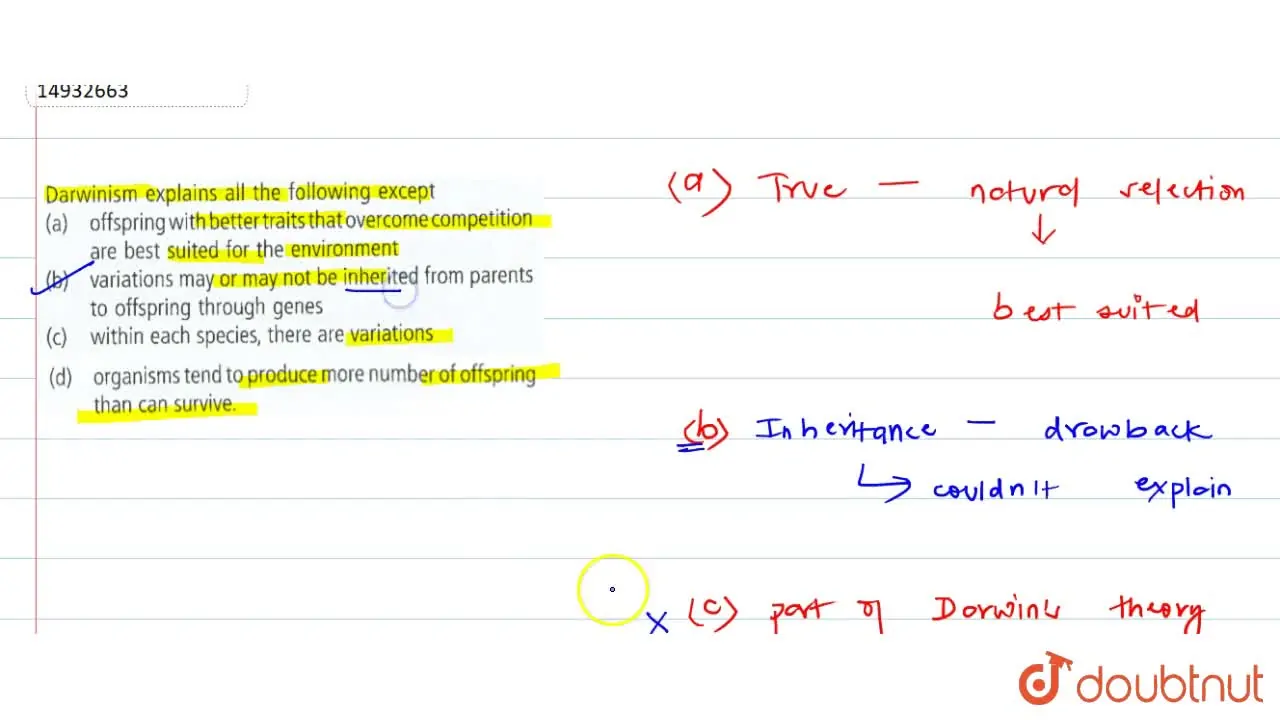 14932663
Darwinism explains all the following except
(a) offspring with better traits that overcome competition
are best suited for the environment
(b) variations may or may not be inherited from parents
to offspring through genes
(c) within each species, there are variations
(d) organisms tend to produce more number of offspring
than can survive.
(a) True — natural selection
best suited
(b) Inheritance — drowback
couldn't explain
x (c) part of Dorwin's theory
doubtnut